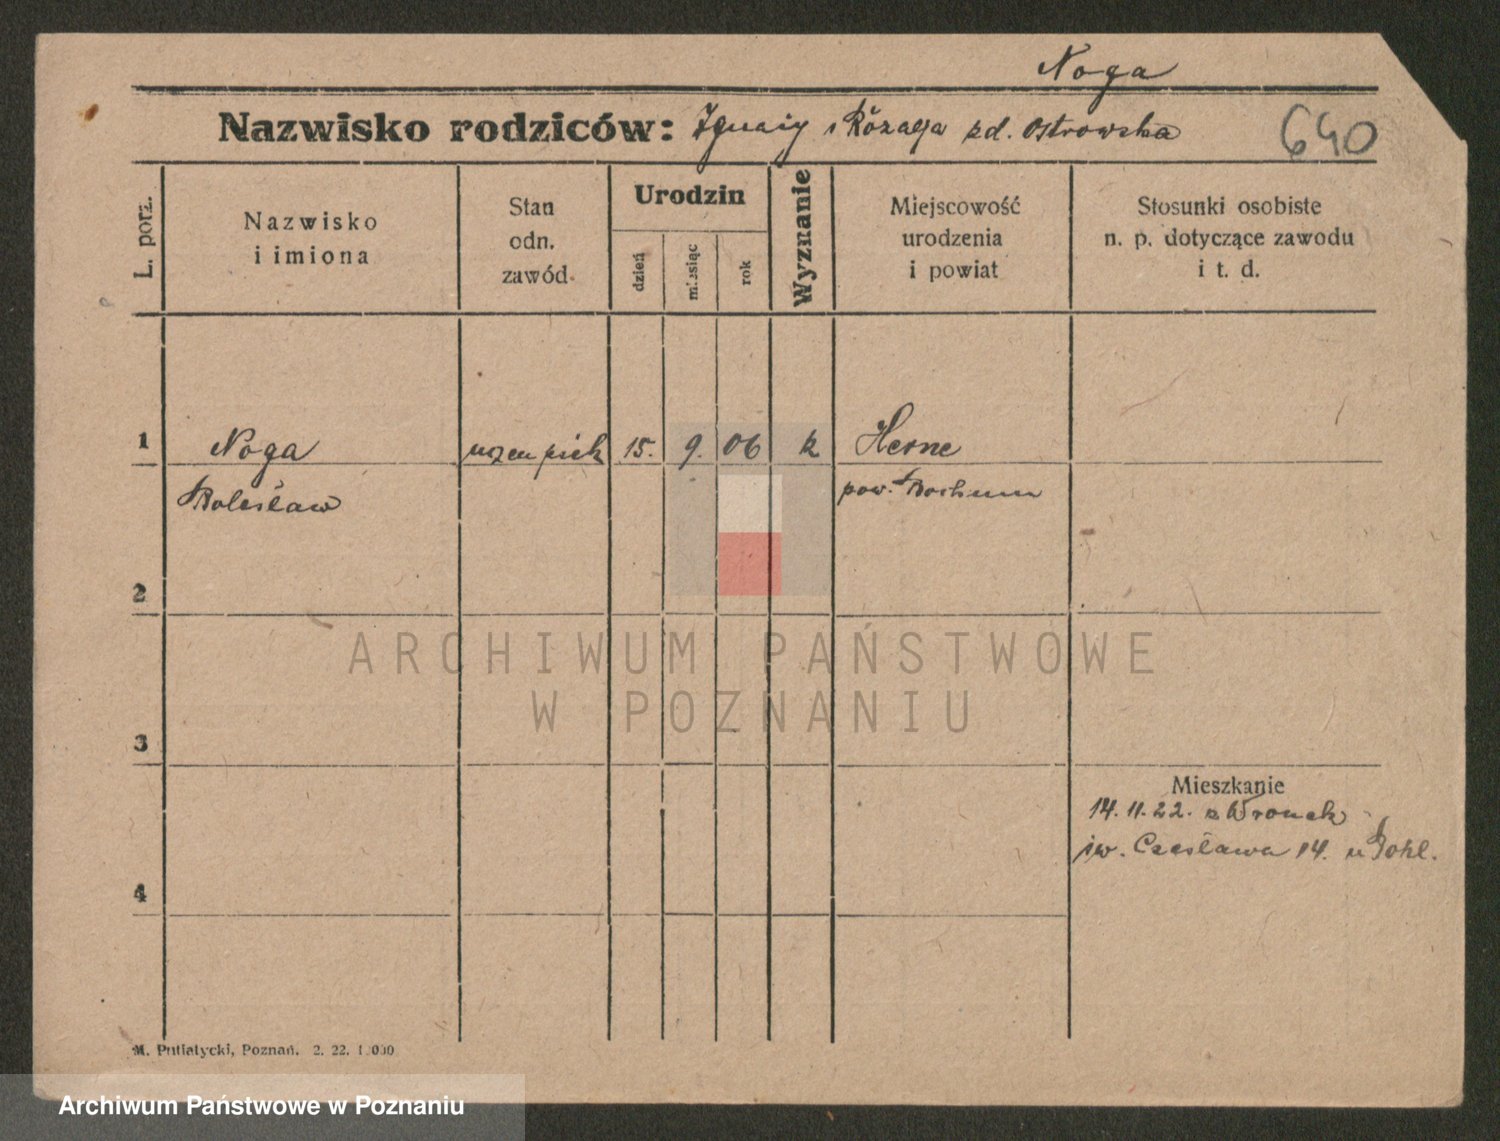 Noga
Nazwisko rodziców: Ignacy i Rózalja zd. Ostrowska
640
L. porz.
Nazwisko
i imiona
Stan
odn.
zawód
Urodzin
dzień
miesiąc
rok
Wyznanie
Miejscowość
urodzenia
i powiat
Stosunki osobiste
n. p. dotyczące zawodu
i t. d.
1
Noga
uczeu piek
15.
9.
06
k
Herne
Bolesław
pow. Bochum
2
ARCHIWUM PAŃSTWOWE
W POZNANIU
3
Mieszkanie
14.11.22. z Wronek
św. Czesława 14. u Pohl.
4
M. Putiatycki, Poznań. 2. 22. 1.000
Archiwum Państwowe w Poznaniu